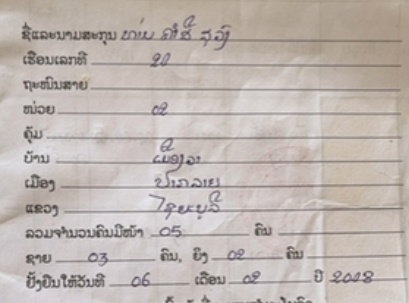 ຊື່ແລະນາມສະກຸນ ທ່ານ ຄຳສີ
ເຮືອນເລກທີ 20
ຖະໜົນສາຍ
ໜ່ວຍ 02
ຄຸ້ມ
ບ້ານ
ເມືອງ ປາກລາຍ
ແຂວງ ໄຊຍະບູລີ
ລວມຈຳນວນຄົນມີໜ້າ 05 ຄົນ
ຊາຍ 03 ຄົນ, ຍິງ 02 ຄົນ
ຢັ້ງຢືນໃຫ້ວັນທີ 06 ເດືອນ 02 ປີ 2018